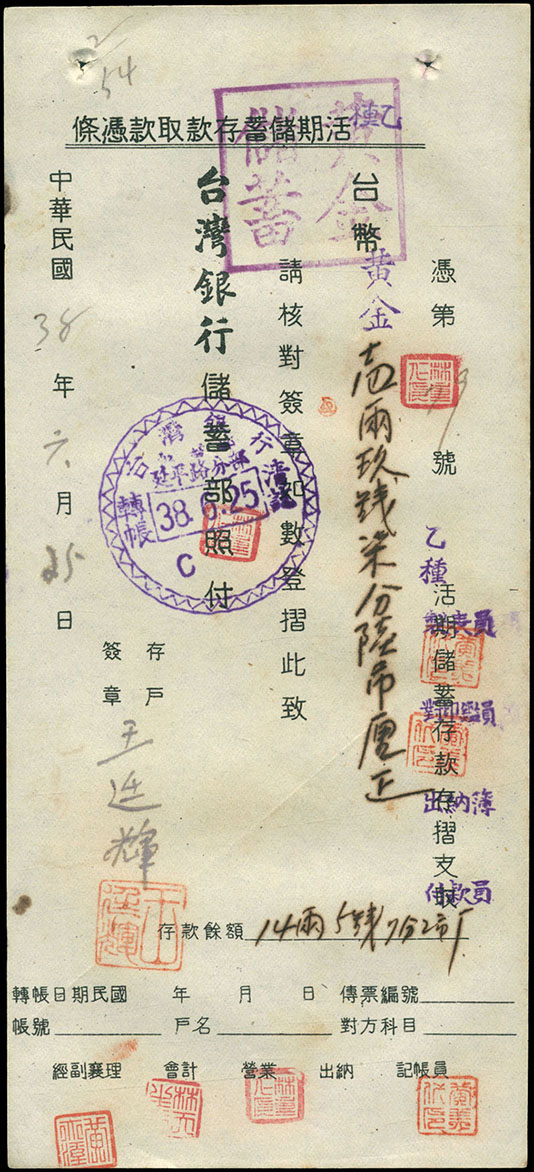 2/54
乙種
活期儲蓄存款取款憑條
黃金儲蓄
憑第 19 號
乙種
活期儲蓄存款存摺支取
台幣
黃金
壹兩玖錢柒分陸
正
請核對簽章如數登摺此致
台灣銀行儲蓄部照付
台灣銀行
延平路分部
38. 6. 25
轉帳
清訖
C
中華民國 38 年 六 月 25 日
存戶
簽章
王廷輝
對印鑑員
出納簿
付款員
存款餘額 14兩5錢7分2
轉帳日期民國 年 月 日 傳票編號
帳號 戶名 對方科目
經副襄理 會計 營業 出納 記帳員